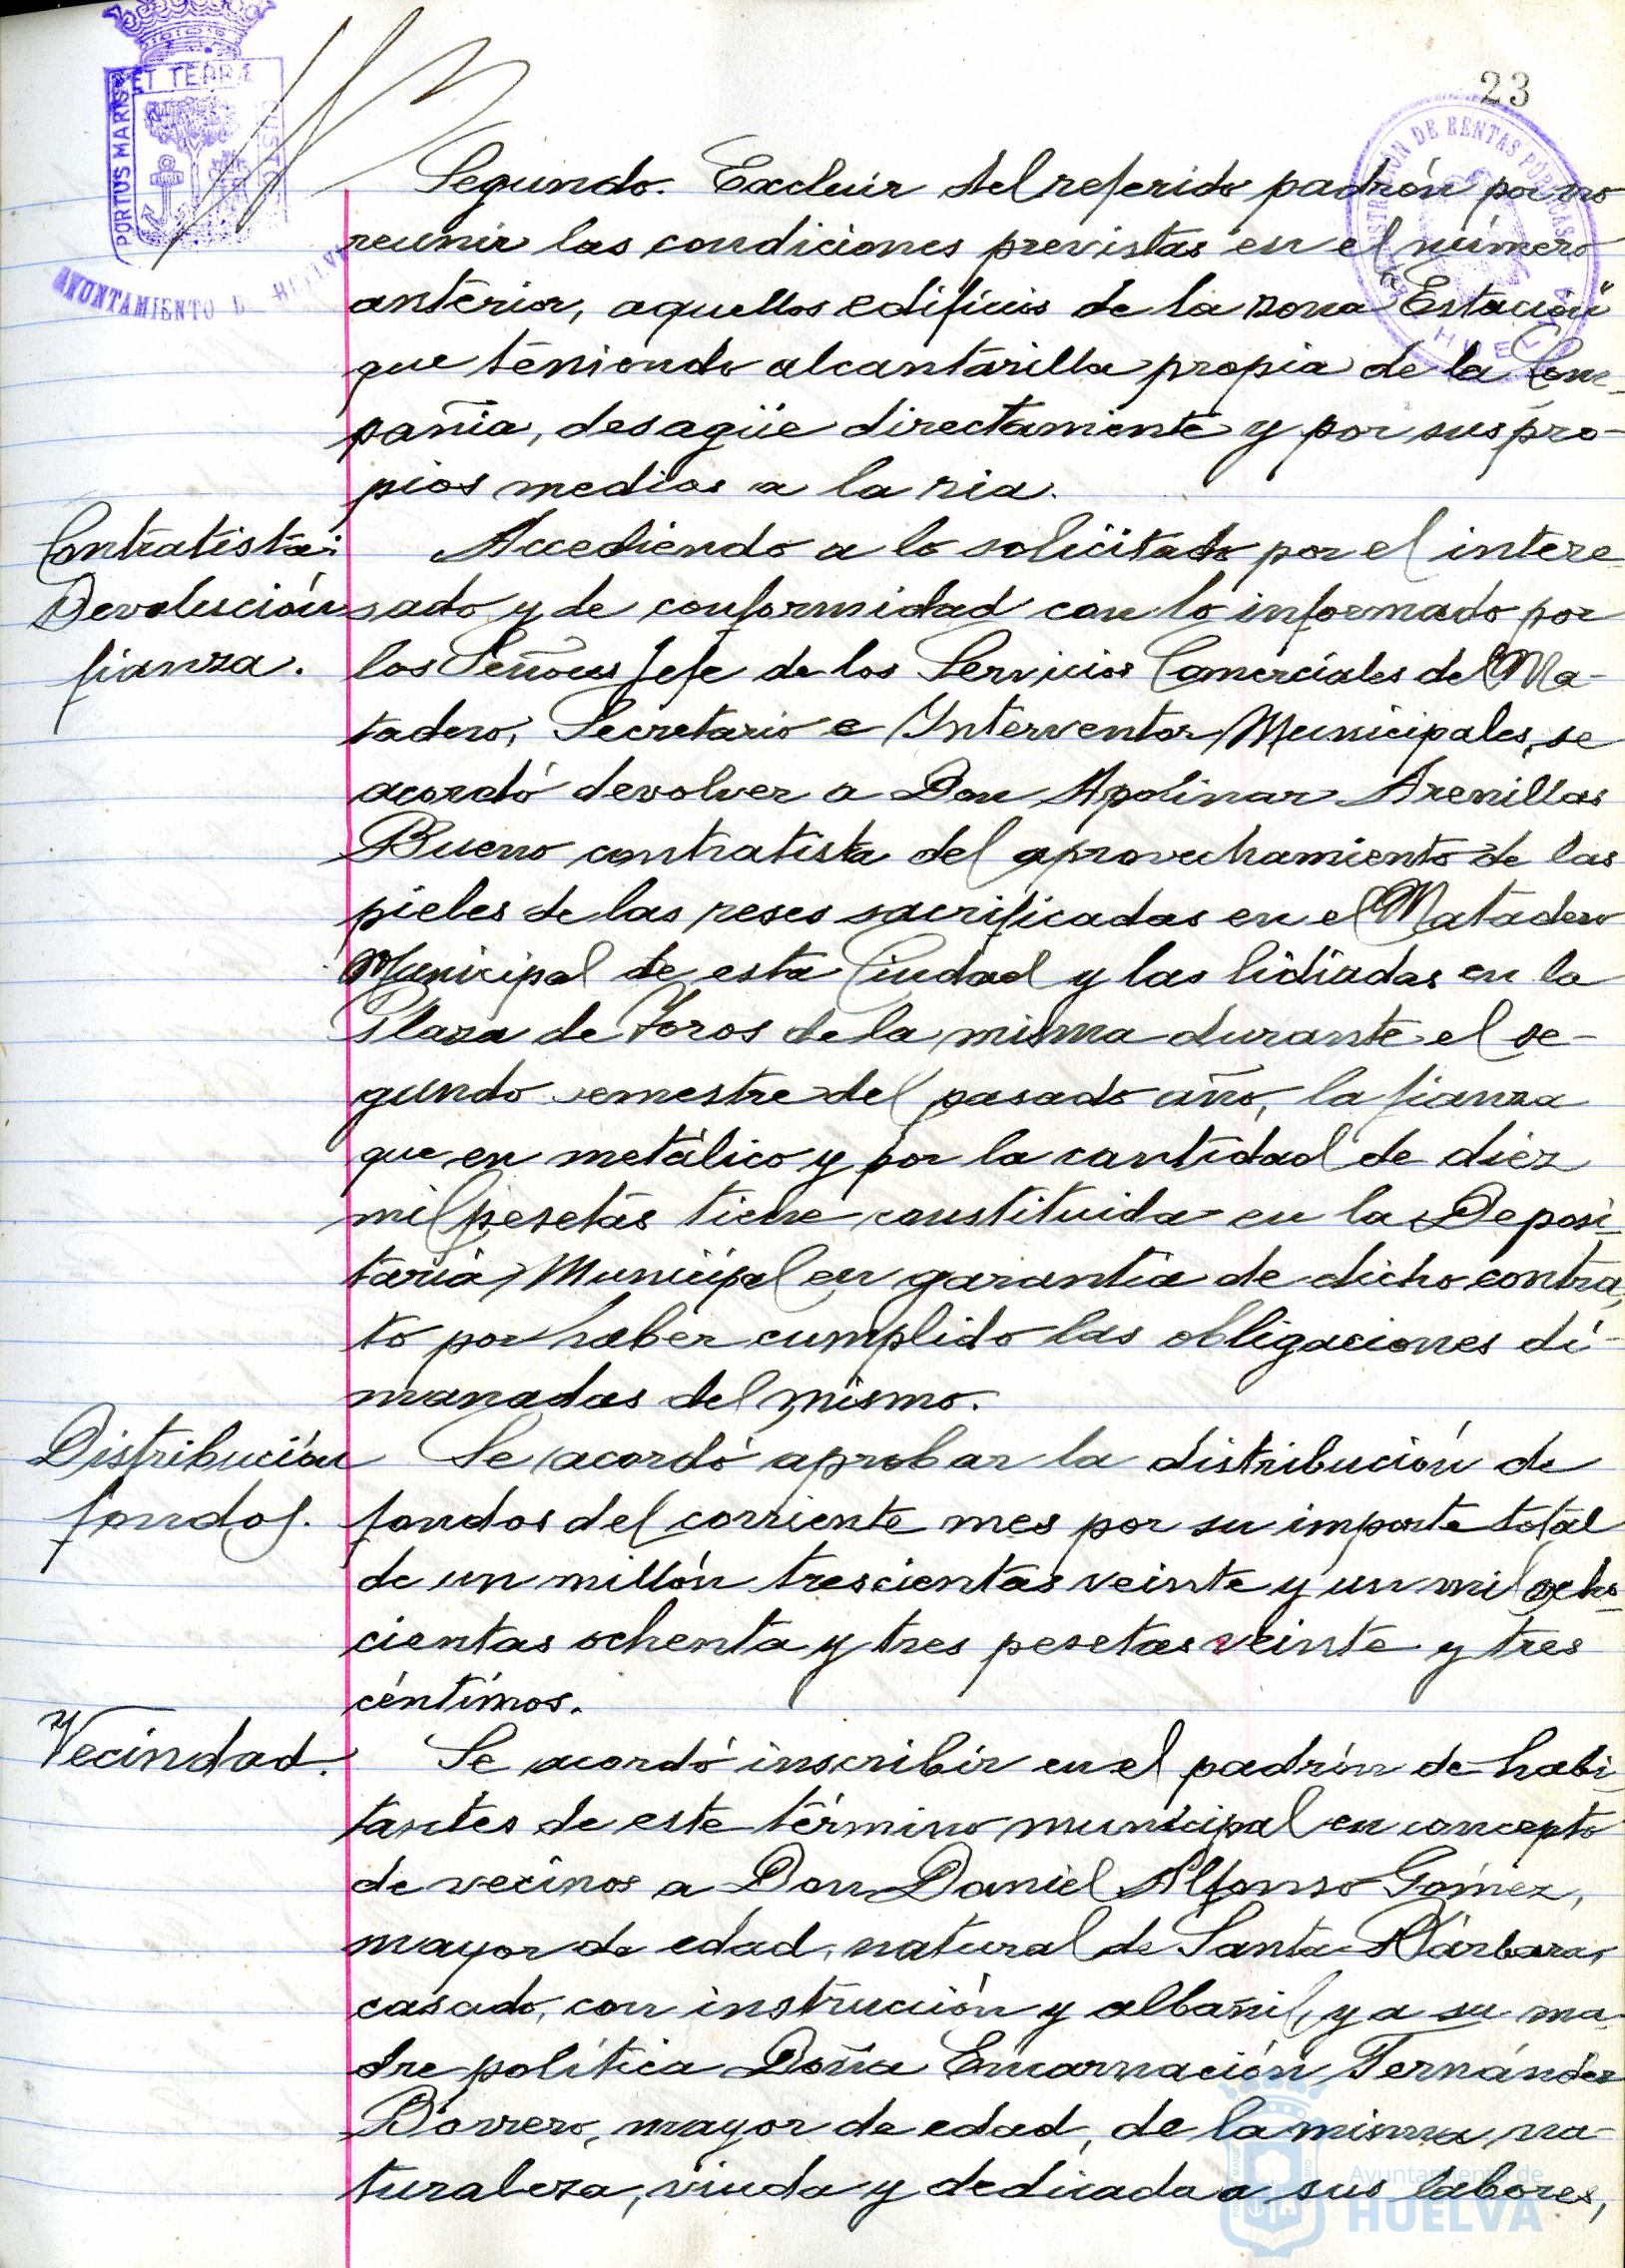 23
PORTUS MARIS ET TERRÆ CUSTO
AYUNTAMIENTO D HUELVA
STRACIÓN DE RENTAS PÚBLICAS
HUELVA
Segundo. Excluir del referido padrón por no
reunir las condiciones previstas en el número
anterior, aquellos edificios de la zona "Estación"
que teniendo alcantarilla propia de la Com-
pañía, desagüe directamente y por sus pro-
pios medios a la ria.
Contratista:
Devolución
fianza.
Accediendo a lo solicitado por el intere-
sado y de conformidad con lo informado por
los Señores Jefe de los Servicios Comerciales del Ma-
tadero, Secretario e Interventor Municipales, se
acordó devolver a Don Apolinar Arenillas
Bueno contratista del aprovechamiento de las
pieles de las reses sacrificadas en el Matadero
Municipal de esta Ciudad y las lidiadas en la
Plaza de Toros de la misma durante el se-
gundo semestre del pasado año, la fianza
que en metálico y por la cantidad de diez
mil pesetas tiene constituida en la Deposi-
taria Municipal en garantia de dicho contra-
to por haber cumplido las obligaciones di-
manadas del mismo.
Distribución
fondos.
Se acordó aprobar la distribución de
fondos del corriente mes por su importe total
de un millón trescientas veinte y un mil ocho-
cientas ochenta y tres pesetas veinte y tres
céntimos.
Vecindad.
Se acordó inscribir en el padrón de habi-
tantes de este término municipal en concepto
de vecinos a Don Daniel Alfonso Gómez,
mayor de edad, natural de Santa Bárbara,
casado, con instrucción y albañil, y a su ma-
dre política Doña Encarnación Fernández
Borrero, mayor de edad, de la misma na-
turaleza, viuda y dedicada a sus labores,
Ayuntamiento de
HUELVA